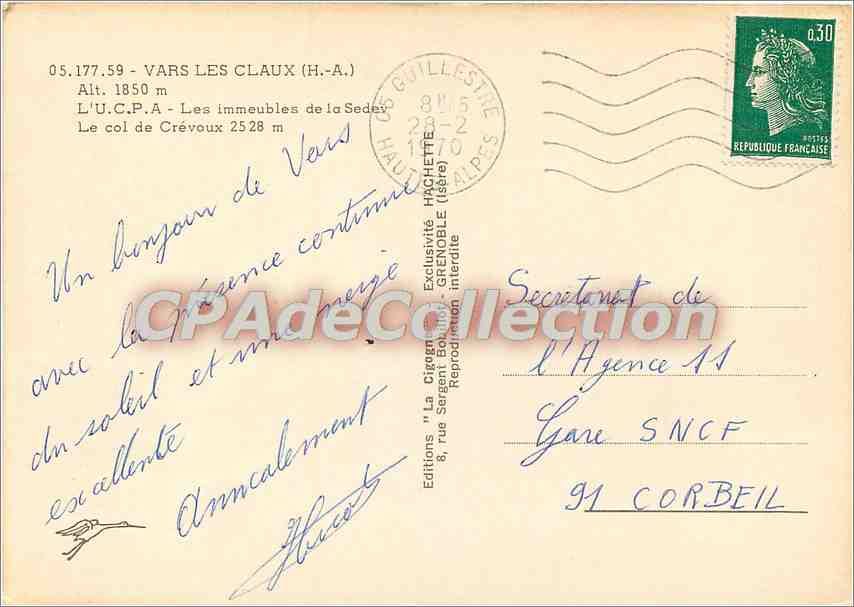 05.177.59 - VARS LES CLAUX (H.-A.)
Alt. 1850 m
L'U.C.P.A - Les immeubles de la Sedev
Le col de Crévoux 2528 m
Un bonjour de Vars
avec la présence continue
du soleil et une neige
excellente
Amicalement
05 GUILLESTRE
28-2
1970
HAUTES ALPES
0,30
POSTES
REPUBLIQUE FRANÇAISE
Editions "La Cigogne" - Exclusivité HACHETTE
8, rue Sergent Bobillot - GRENOBLE (Isère)
Reproduction interdite
Secretariat de
l'Agence SS
Gare SNCF
91 CORBEIL
CPAdeCollection